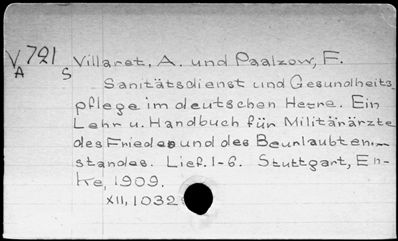 V 721 Villaret, A. und Paalzow, F.
A S
Sanitätsdienst und Gesundheits-
pflege im deutschen Heere. Ein
Lehr u. Handbuch für Militärärzte
des Friedes und des Beurlaubten-
standes. Lief. 1-6. Stuttgart, En-
ke, 1909.
XII, 1032